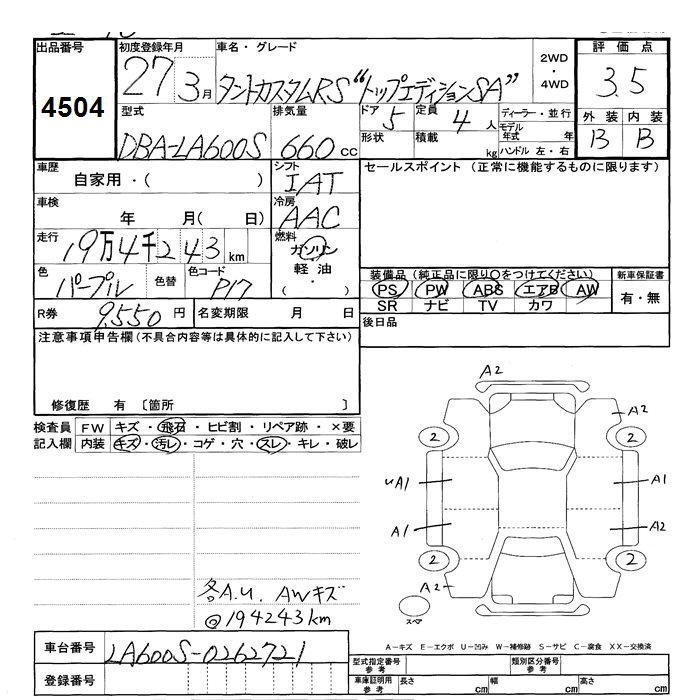 出品番号 初度登録年月 車名・グレード 評価点
4504 27 3月 タントカスタムRS "トップエディションSA" 2WD・4WD 3.5
型式 排気量 ドア 定員 ディーラー・並行 外装 内装
DBA-LA600S 660cc 5 4人 モデル年式 年 B B
形状 積載 kg ハンドル 左・右
車歴 シフト セールスポイント（正常に機能するものに限ります）
自家用・（ ） IAT
車検 冷房
年 月（ 日） AAC
走行 燃料
19万4千243km ガソリン
軽油
・（ ）
色 色替 色コード 装備品（純正品に限り○をつけてください） 新車保証書
パープル P17 PS PW ABS エアB AW 有・無
SR ナビ TV カワ
R券 9,550円 名変期限 月 日 後日品
注意事項申告欄（不具合内容等は具体的に記入して下さい）
修復歴 有 〔箇所 〕
検査員 FW キズ・飛石・ヒビ割・リペア跡・×要
記入欄 内装 キズ・汚レ・コゲ・穴・スレ・キレ・破レ
A2
A2
2 2
A1 A1
A1 A2
2 2
A2
スペア
各A.U. AWキズ
@194243km
A－キズ E－エクボ U－凹み W－補修跡 S－サビ C－腐食 XX－交換済
車台番号 LA600S-0262721
登録番号
型式指定番号 参考 類別区分番号 参考
車庫証明用 参考 長さ cm 幅 cm 高さ cm